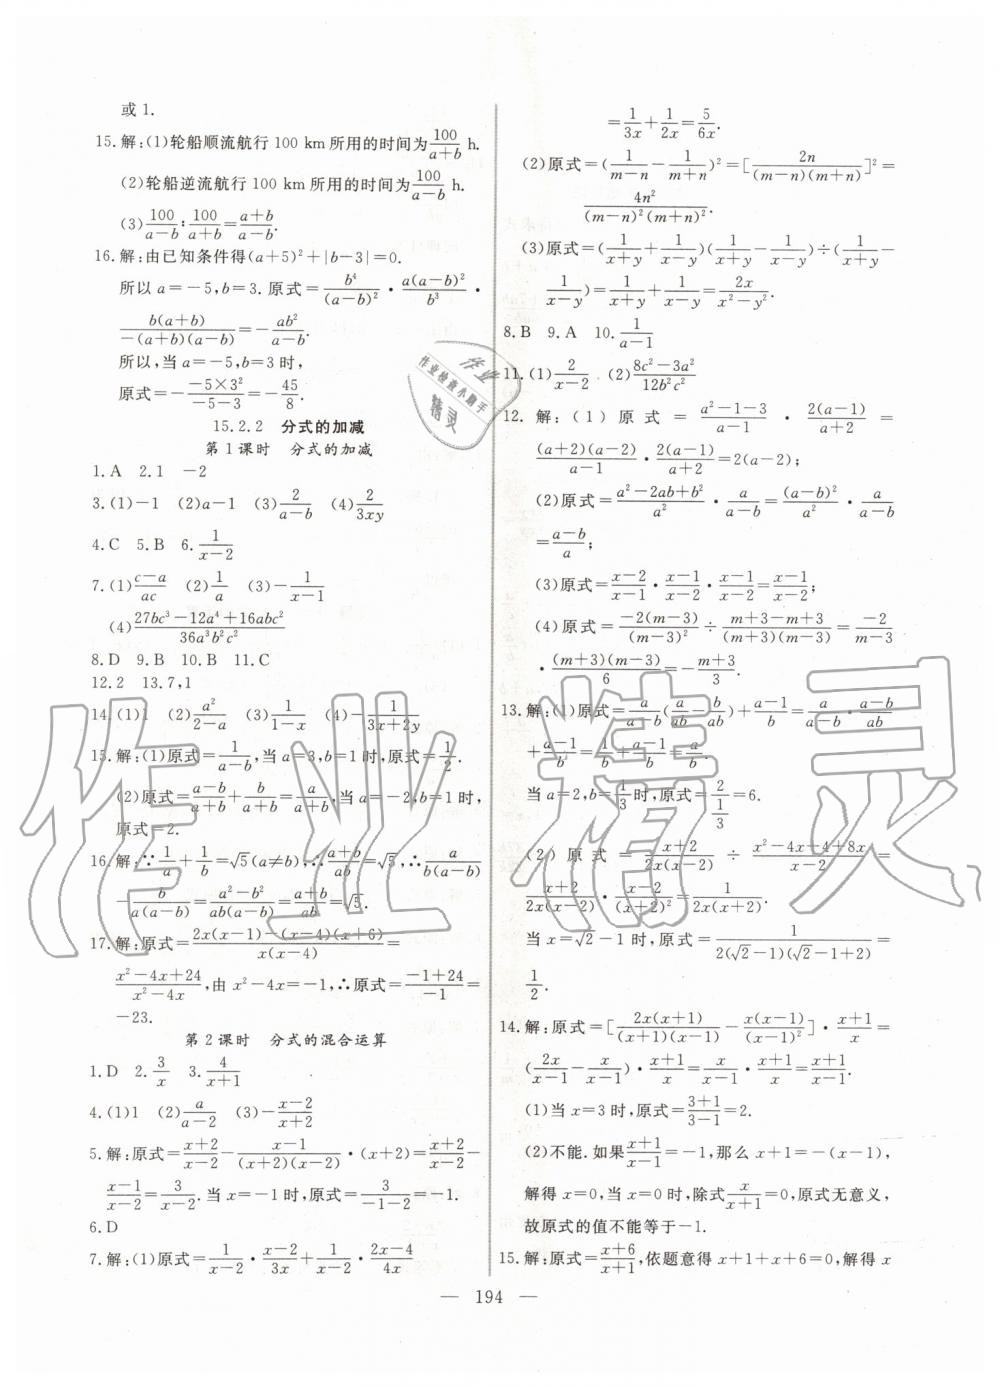 或1.
15.解:(1)轮船顺流航行100 km所用的时间为\frac{100}{a+b} h.
(2)轮船逆流航行100 km所用的时间为\frac{100}{a-b} h.
(3)\frac{100}{a-b}:\frac{100}{a+b}=\frac{a+b}{a-b}.
16.解:由已知条件得(a+5)²+|b-3|=0.
所以a=-5,b=3.原式=\frac{b⁴}{(a-b)²}·\frac{a(a-b)²}{b³}·
\frac{b(a+b)}{-(a+b)(a-b)}=-\frac{ab²}{a-b}.
所以,当a=-5,b=3时,
原式=-\frac{-5×3²}{-5-3}=-\frac{45}{8}.
15.2.2 分式的加减
第1课时 分式的加减
1.A 2.1 -2
3.(1)-1 (2)a-1 (3)\frac{2}{a-b} (4)\frac{2}{3xy}
4.C 5.B 6.\frac{1}{x-2}
7.(1)\frac{c-a}{ac} (2)\frac{1}{a} (3)-\frac{1}{x-1}
(4)\frac{27bc³-12a⁴+16abc²}{36a³b²c²}
8.D 9.B 10.B 11.C
12.2 13.7,1
14.(1)1 (2)\frac{a²}{2-a} (3)\frac{1}{1-x} (4)-\frac{1}{3x+2y}
15.解:(1)原式=\frac{1}{a-b},当a=3,b=1时,原式=\frac{1}{2}.
(2)原式=\frac{a-b}{a+b}+\frac{b}{a+b}=\frac{a}{a+b},当a=-2,b=1时,
原式=2.
16.解:∵\frac{1}{a}+\frac{1}{b}=√5(a≠b),∴\frac{a+b}{ab}=√5,∴\frac{a}{b(a-b)}
-\frac{b}{a(a-b)}=\frac{a²-b²}{ab(a-b)}=\frac{a+b}{ab}=√5.
17.解:原式=\frac{2x(x-1)-(x-4)(x+6)}{x(x-4)}=
\frac{x²-4x+24}{x²-4x},由x²-4x=-1,∴原式=\frac{-1+24}{-1}=
-23.
第2课时 分式的混合运算
1.D 2.\frac{3}{x} 3.\frac{4}{x+1}
4.(1)1 (2)\frac{a}{a-2} (3)-\frac{x-2}{x+2}
5.解:原式=\frac{x+2}{x-2}-\frac{x-1}{(x+2)(x-2)}·(x+2)=\frac{x+2}{x-2}-
\frac{x-1}{x-2}=\frac{3}{x-2}.当x=-1时,原式=\frac{3}{-1-2}=-1.
6.D
7.解:(1)原式=\frac{1}{x-2}·\frac{x-2}{3x}+\frac{1}{x-2}·\frac{2x-4}{4x}
=\frac{1}{3x}+\frac{1}{2x}=\frac{5}{6x}.
(2)原式=(\frac{1}{m-n}-\frac{1}{m+n})²=[\frac{2n}{(m-n)(m+n)}]²=
\frac{4n²}{(m-n)²(m+n)²}.
(3)原式=(\frac{1}{x+y}+\frac{1}{x-y})(\frac{1}{x+y}-\frac{1}{x-y})÷(\frac{1}{x+y}-
\frac{1}{x-y})=\frac{1}{x+y}+\frac{1}{x-y}=\frac{2x}{x²-y²}.
8.B 9.A 10.\frac{1}{a-1}
11.(1)\frac{2}{x-2} (2)\frac{8c²-3a²}{12b²c²}
12.解:(1)原式=\frac{a²-1-3}{a-1}·\frac{2(a-1)}{a+2}=
\frac{(a+2)(a-2)}{a-1}·\frac{2(a-1)}{a+2}=2(a-2);
(2)原式=\frac{a²-2ab+b²}{a²}·\frac{a}{a-b}=\frac{(a-b)²}{a²}·\frac{a}{a-b}
=\frac{a-b}{a};
(3)原式=\frac{x-2}{x-1}·\frac{1}{x-2}·\frac{x-1}{x-2}=\frac{1}{x-2};
(4)原式=\frac{-2(m-3)}{(m-3)²}÷\frac{m+3-m+3}{(m+3)(m-3)}=\frac{-2}{m-3}
·\frac{(m+3)(m-3)}{6}=-\frac{m+3}{3}.
13.解:(1)原式=\frac{a}{a-b}(\frac{a}{ab}-\frac{b}{ab})+\frac{a-1}{b}=\frac{a}{a-b}·\frac{a-b}{ab}
+\frac{a-1}{b}=\frac{1}{b}+\frac{a-1}{b}=\frac{a}{b}.
当a=2,b=\frac{1}{3}时,原式=\frac{2}{\frac{1}{3}}=6.
(2)原式=\frac{x+2}{2x(x-2)}÷\frac{x²-4x+4+8x}{x-2}=
\frac{x+2}{2x(x-2)}·\frac{x-2}{(x+2)²}=\frac{1}{2x(x+2)}.
当x=√2-1时,原式=\frac{1}{2(√2-1)(√2-1+2)}=
\frac{1}{2}.
14.解:原式=[\frac{2x(x+1)}{(x+1)(x-1)}-\frac{x(x-1)}{(x-1)²}]·\frac{x+1}{x}=
(\frac{2x}{x-1}-\frac{x}{x-1})·\frac{x+1}{x}=\frac{x}{x-1}·\frac{x+1}{x}=\frac{x+1}{x-1}.
(1)当x=3时,原式=\frac{3+1}{3-1}=2.
(2)不能.如果\frac{x+1}{x-1}=-1,那么x+1=-(x-1),
解得x=0,当x=0时,除式\frac{x}{x+1}=0,原式无意义,
故原式的值不能等于-1.
15.解:原式=\frac{x+6}{x+1},依题意得x+1+x+6=0,解得x
— 194 —
作业
作业检查小助手
精灵
作业精灵